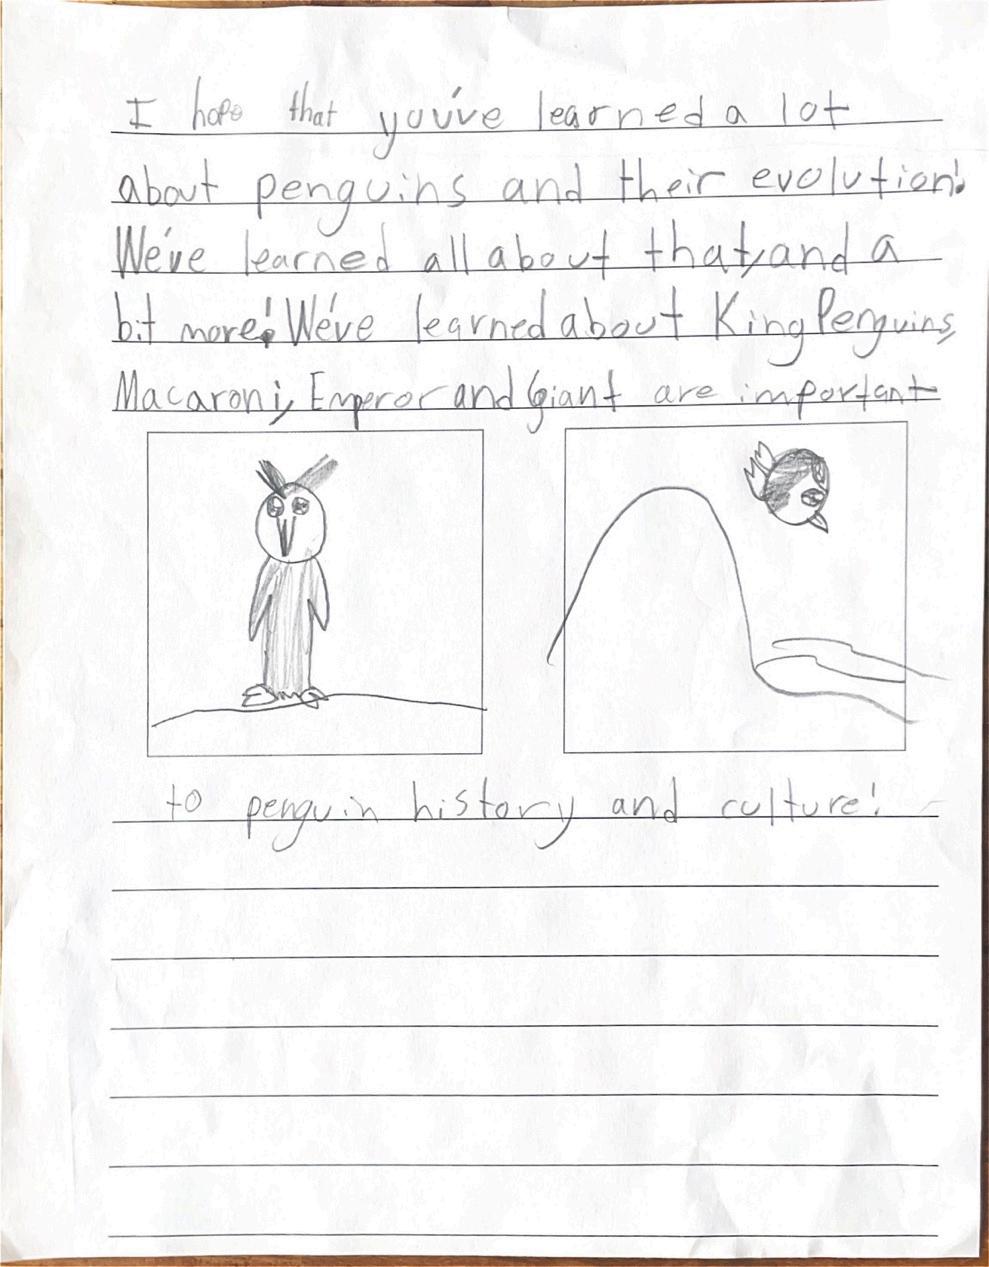 I hope that you've learned a lot
about penguins and their evolution!
We've learned all about that, and a
bit more! We've learned about King Penguins,
Macaroni, Emperor and Giant are important
to penguin history and culture!